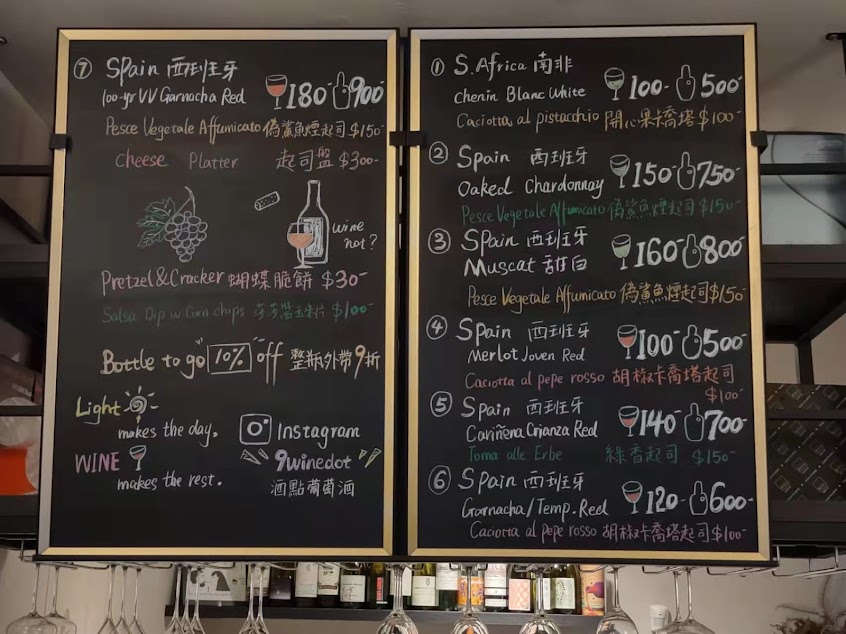 ⑦ Spain 西班牙
100-yr VV Garnacha Red 180- 900-
Pesce Vegetale Affumicato 偽鯊魚煙起司 $150-
cheese Platter 起司盤 $300-
wine
not?
Pretzel&Cracker 蝴蝶脆餅 $30-
Salsa Dip w Corn chips 莎莎醬玉米片 $100-
Bottle to go 10% off 整瓶外帶9折
Light
makes the day.
WINE
makes the rest.
Instagram
9winedot
酒點葡萄酒
① S.Africa 南非
Chenin Blanc White 100- 500-
Caciotta al pistacchio 開心果卡喬塔 $100-
② Spain 西班牙
Oaked Chardonnay 150- 750-
Pesce Vegetale Affumicato 偽鯊魚煙起司 $150-
③ Spain 西班牙
Muscat 甜白 160- 800-
Pesce Vegetale Affumicato 偽鯊魚煙起司 $150-
④ Spain 西班牙
Merlot Joven Red 100- 500-
Caciotta al pepe rosso 胡椒卡喬塔起司
$100-
⑤ Spain 西班牙
Cariñena Crianza Red 140- 700-
Toma alle Erbe 綠香起司 $150-
⑥ Spain 西班牙
Garnacha/Temp. Red 120- 600-
Caciotta al pepe rosso 胡椒卡喬塔起司 $100-